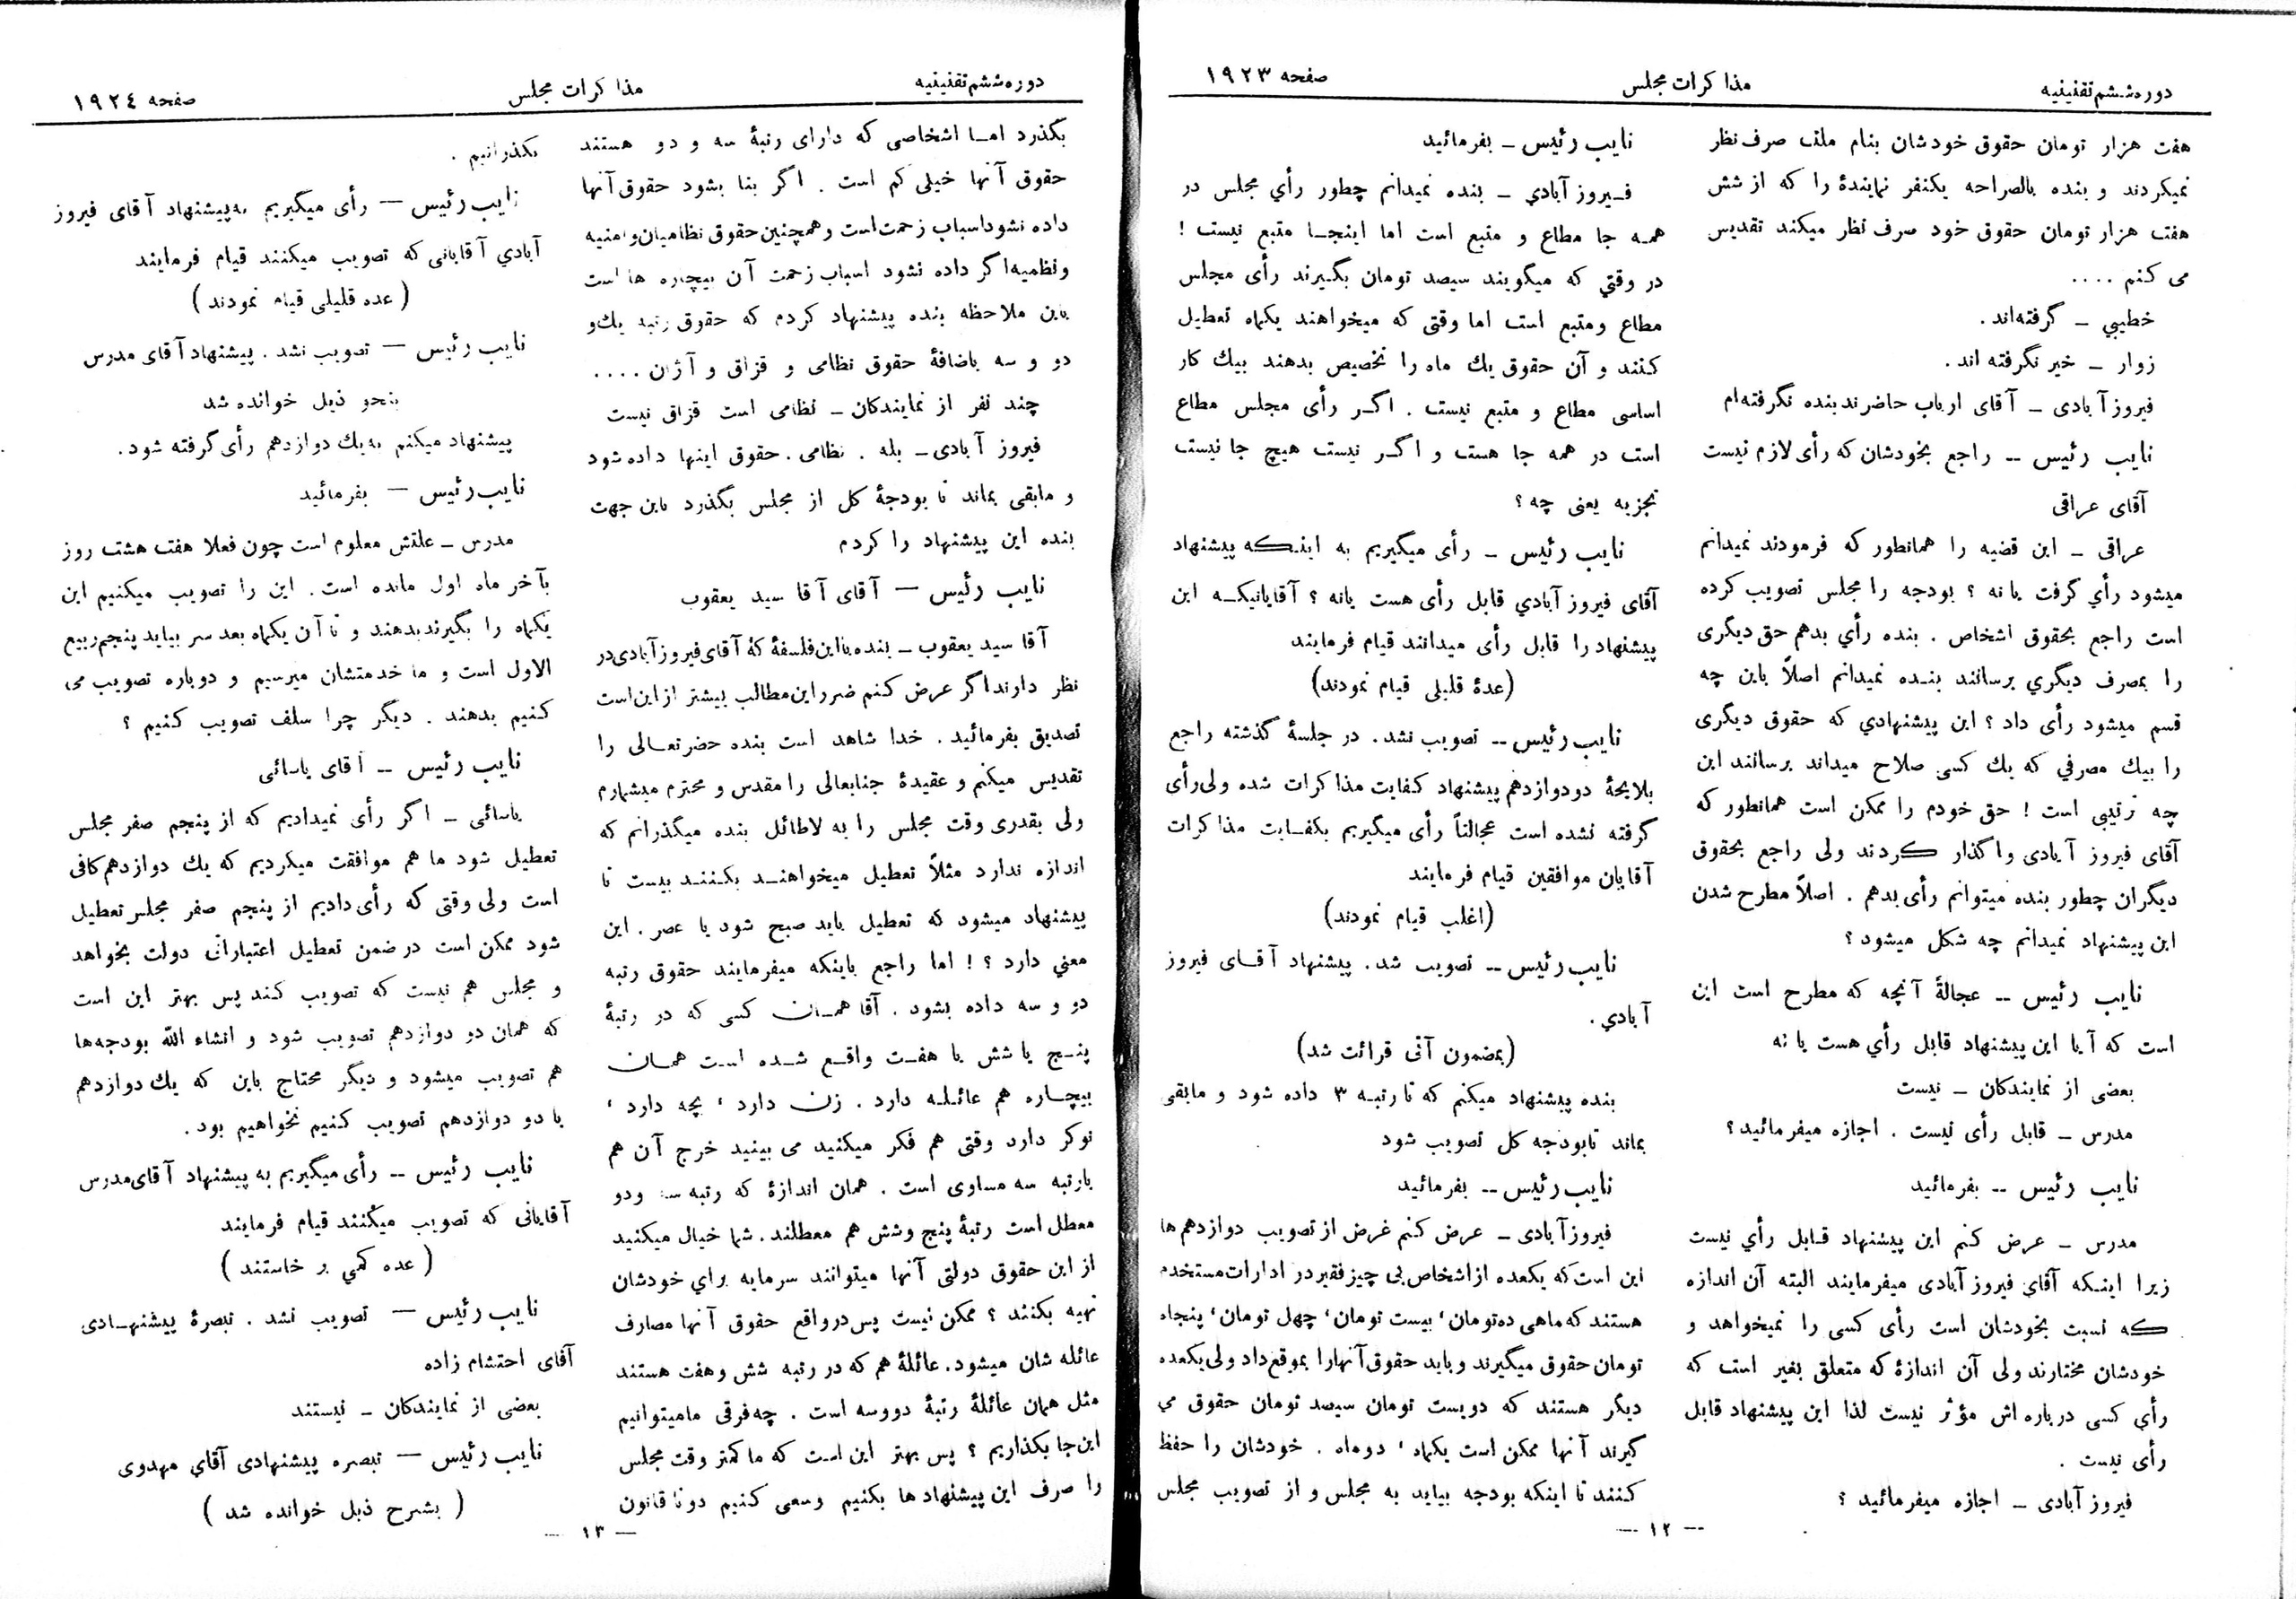 دوره‌ششم تقنینیه
مذاکرات مجلس
صفحه ۱۹۲۳
هفت هزار تومان حقوق خودشان بنام ملت صرف نظر
نمیکردند و بنده بالصراحه یکنفر نمایندهٔ را که از شش
هفت هزار تومان حقوق خود صرف نظر میکند تقدیس
می کنم ....
خطیبی ــ گرفته‌اند.
زوار ــ خیر نگرفته اند.
فیروز آبادی ــ آقای ارباب حاضرند بنده نگرفته‌ام
نایب رئیس ــ راجع بخودشان که رأی لازم نیست
آقای عراقی
عراقی ــ این قضیه را همانطور که فرمودند نمیدانم
میشود رأی گرفت یا نه ؟ بودجه را مجلس تصویب کرده
است راجع بحقوق اشخاص . بنده رأی بدهم حق دیگری
را بمصرف دیگری برسانند بنده نمیدانم اصلاً باین چه
قسم میشود رأی داد ؟ این پیشنهادی که حقوق دیگری
را بیك مصرفی که یك کسی صلاح میداند برسانند این
چه ترتیبی است ! حق خودم را ممکن است همانطور که
آقای فیروز آبادی واگذار کردند ولی راجع بحقوق
دیگران چطور بنده میتوانم رأی بدهم . اصلاً مطرح شدن
این پیشنهاد نمیدانم چه شکل میشود ؟
نایب رئیس ــ عجالةً آنچه که مطرح است این
است که آیا این پیشنهاد قابل رأی هست یا نه
بعضی از نمایندکان ــ نیست
مدرس ــ قابل رأی نیست . اجازه میفرمائید ؟
نایب رئیس ــ بفرمائید
مدرس ــ عرض کنم این پیشنهاد قابل رأی نیست
زیرا اینکه آقای فیروز آبادی میفرمایند البته آن اندازه
که نسبت بخودشان است رأی کسی را نمیخواهد و
خودشان مختارند ولی آن اندازهٔ که متعلق بغیر است که
رأی کسی درباره‌اش مؤثر نیست لذا این پیشنهاد قابل
رأی نیست .
فیروز آبادی ــ اجازه میفرمائید ؟
نایب رئیس ــ بفرمائید
فیروز آبادی ــ بنده نمیدانم چطور رأی مجلس در
همه جا مطاع و متبع است اما اینجا متبع نیست !
در وقتی که میگویند سیصد تومان بگیرند رأی مجلس
مطاع ومتبع است اما وقتی که میخواهند یکماه تعطیل
کنند و آن حقوق یك ماه را تخصیص بدهند بیك کار
اساسی مطاع و متبع نیست . اگر رأی مجلس مطاع
است در همه جا هست و اگر نیست هیچ جا نیست
تجزبه یعنی چه ؟
نایب رئیس ــ رأی میگیریم به اینکه پیشنهاد
آقای فیروز آبادی قابل رأی هست یانه ؟ آقایانیکه این
پیشنهاد را قابل رأی میدانند قیام فرمایند
(عدهٔ قلیلی قیام نمودند)
نایب رئیس ــ تصویب نشد. در جلسهٔ گذشته راجع
بلایحهٔ دودوازدهم پیشنهاد کفایت مذاکرات شده ولی رأی
گرفته نشده است عجالتاً رأی میگیریم بکفایت مذاکرات
آقایان موافقین قیام فرمایند
(اغلب قیام نمودند)
نایب رئیس ــ تصویب شد. پیشنهاد آقای فیروز
آبادی.
(بمضمون آتی قرائت شد)
بنده پیشنهاد میکنم که تا رتبه ۳ داده شود و مابقی
بماند تابودجه کل تصویب شود
نایب رئیس ــ بفرمائید
فیروز آبادی ــ عرض کنم غرض از تصویب دوازدهم ها
این است که یکعده از اشخاص بی چیز فقیر در ادارات مستخدم
هستند که ماهی ده تومان، بیست تومان، چهل تومان، پنجاه
تومان حقوق میگیرند و باید حقوق آنهارا بموقع داد ولی یکعده
دیگر هستند که دویست تومان سیصد تومان حقوق می
گیرند آنها ممکن است یکماه ، دوماه . خودشان را حفظ
کنند تا اینکه بودجه بیاید به مجلس و از تصویب مجلس
— ۱۲ —
دوره ششم تقنینیه
مذاکرات مجلس
صفحه ۱۹۲٤
بگذرد اما اشخاصی که دارای رتبهٔ سه و دو هستند
حقوق آنها خیلی کم است . اگر بنا بشود حقوق آنها
داده نشود اسباب زحمت است و همچنین حقوق نظامیان و امنیه
و نظمیه اگر داده نشود اسباب زحمت آن بیچاره ها است
باین ملاحظه بنده پیشنهاد کردم که حقوق رتبه یك و
دو و سه باضافهٔ حقوق نظامی و قزاق و آژان ....
چند نفر از نمایندکان ــ نظامی است قزاق نیست
فیروز آبادی ــ بله . نظامی . حقوق اینها داده شود
و مابقی بماند تا بودجهٔ کل از مجلس بگذرد باین جهت
بنده این پیشنهاد را کردم
نایب رئیس — آقای آقا سید یعقوب
آقا سید یعقوب ــ بنده با این فلسفهٔ که آقای فیروز آبادی در
نظر دارند اگر عرض کنم ضرر این مطالب بیشتر از این است
تصدیق بفرمائید . خدا شاهد است بنده حضرتعالی را
تقدیس میکنم و عقیدهٔ جنابعالی را مقدس و محترم میشمارم
ولی بقدری وقت مجلس را به لاطائل بنده میگذرانم که
اندازه ندارد مثلاً تعطیل میخواهند بکنند بیست تا
پیشنهاد میشود که تعطیل باید صبح شود یا عصر . این
معنی دارد ؟ ! اما راجع باینکه میفرمایند حقوق رتبه
دو و سه داده بشود . آقا همان کسی که در رتبهٔ
پنج یا شش یا هفت واقع شده است همان
بیچاره هم عائله دارد . زن دارد ، بچه دارد ،
نوکر دارد وقتی هم فکر میکنید می بینید خرج آن هم
بارتبه سه مساوی است . همان اندازهٔ که رتبه سه ودو
معطل است رتبهٔ پنج وشش هم معطلند. شما خیال میکنید
از این حقوق دولتی آنها میتوانند سرمایه برای خودشان
تهیه بکنند ؟ ممکن نیست پس درواقع حقوق آنها مصارف
عائله شان میشود. عائلهٔ هم که در رتبه شش وهفت هستند
مثل همان عائلهٔ رتبهٔ دووسه است . چه فرقی مامیتوانیم
این جا بکذاریم ؟ پس بهتر این است که ما کمتر وقت مجلس
را صرف این پیشنهاد ها بکنیم وسعی کنیم دوتا قانون
بکذرانیم .
نایب رئیس — رأی میگیریم به‌پیشنهاد آقای فیروز
آبادی آقایانی که تصویب میکنند قیام فرمایند
(عده قلیلی قیام نمودند)
نایب رئیس — تصویب نشد . پیشنهاد آقای مدرس
بنحو ذیل خوانده شد
پیشنهاد میکنم به‌یك دوازدهم رأی گرفته شود.
نایب رئیس — بفرمائید
مدرس ــ علتش معلوم است چون فعلا هفت هشت روز
بآخر ماه اول مانده است. این را تصویب میکنیم این
یکماه را بگیرند بدهند و تا آن یکماه بعد سر بیاید پنجم ربیع
الاول است و ما خدمتشان میرسیم و دوباره تصویب می
کنیم بدهند . دیگر چرا سلف تصویب کنیم ؟
نایب رئیس ــ آقای یاسائی
یاسائی ــ اگر رأی نمیدادیم که از پنجم صفر مجلس
تعطیل شود ما هم موافقت میکردیم که یك دوازدهم کافی
است ولی وقتی که رأی دادیم از پنجم صفر مجلس تعطیل
شود ممکن است در ضمن تعطیل اعتباراتی دولت بخواهد
و مجلس هم نیست که تصویب کند پس بهتر این است
که همان دو دوازدهم تصویب شود و انشاء الله بودجه‌ها
هم تصویب میشود و دیگر محتاج باین که یك دوازدهم
یا دو دوازدهم تصویب کنیم نخواهیم بود.
نایب رئیس ــ رأی میگیریم به پیشنهاد آقای مدرس
آقایانی که تصویب میکنند قیام فرمایند
(عده کمی بر خاستند)
نایب رئیس — تصویب نشد . تبصرهٔ پیشنهادی
آقای احتشام زاده
بعضی از نمایندکان ــ نیستند
نایب رئیس — تبصره پیشنهادی آقای مهدوی
(بشرح ذیل خوانده شد)
— ۱۳ —